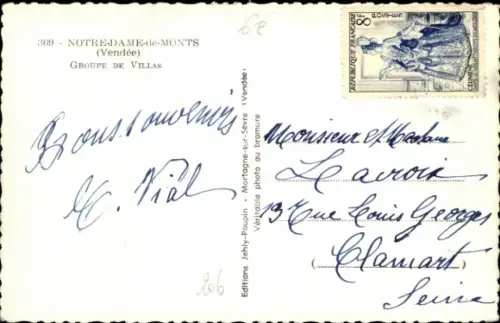 369 - NOTRE-DAME-de-MONTS
(Vendée)
GROUPE DE VILLAS
Bons souvenirs
M. Vial
Editions Jehly-Poupin - Mortagne-sur-Sèvre (Vendée)
Véritable photo au bromure
8F
POSTES
REPUBLIQUE FRANÇAISE
Monsieur et Madame
Lacroix
13 Rue Louis Georges
Clamart
Seine
206